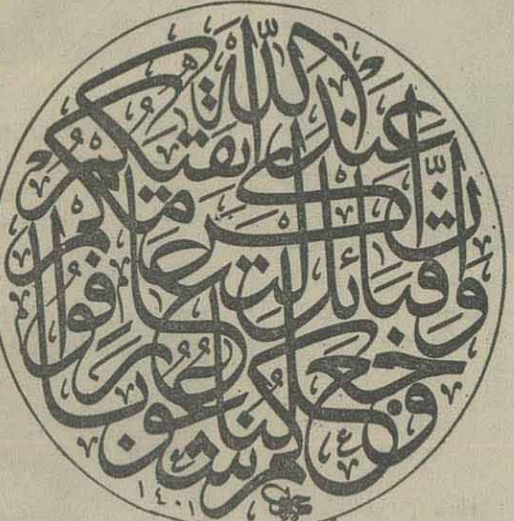 وَجَعَلْنَاكُمْ شُعُوبًا وَقَبَائِلَ لِتَعَارَفُوا إِنَّ أَكْرَمَكُمْ عِنْدَ اللَّهِ أَتْقَيكُمْ
١٤٠١